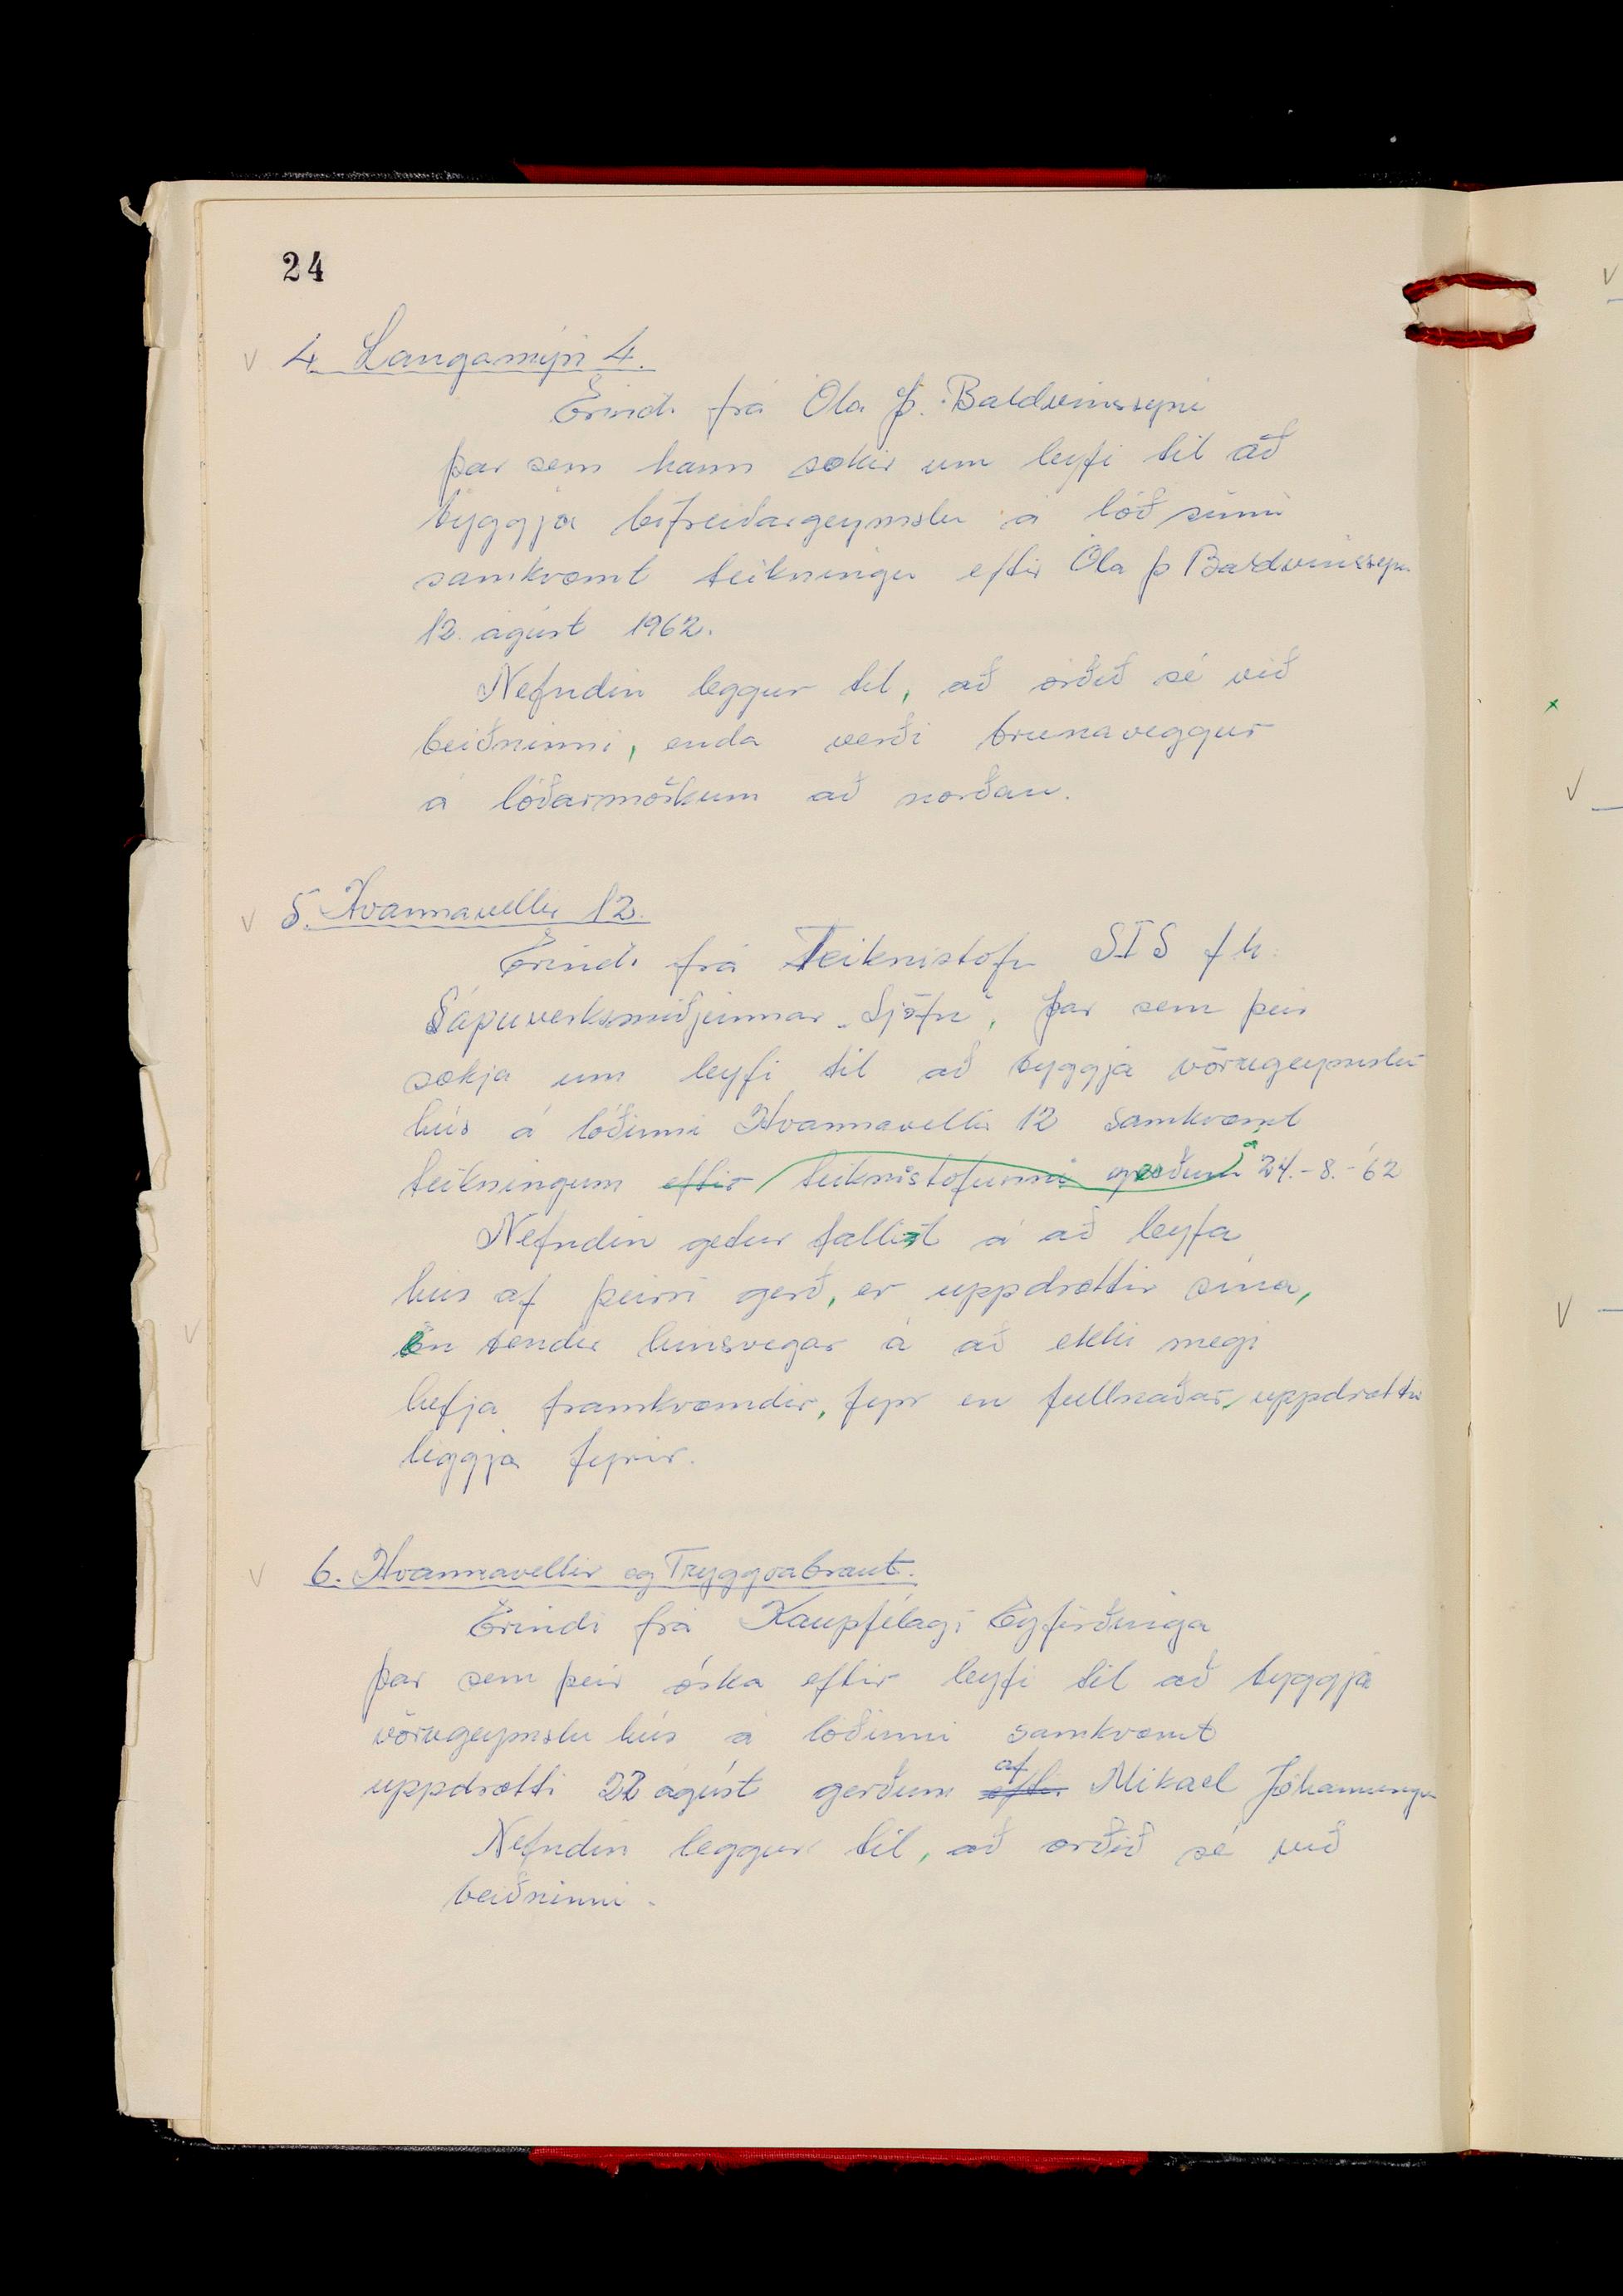 24
4. Langamýri 4.
Erindi frá Óla Þ. Baldvinssyni
þar sem hann sækir um leyfi til að
byggja bifreiðargeymslu á lóð sinni
samkvæmt teikningu eftir Óla Þ Baldvinssyni
12. ágúst 1962.
Nefndin leggur til, að orðið sé við
beiðninni, enda verði brunaveggur
á lóðarmörkum að norðan.
5. Hvannavellir 12.
Erindi frá Teiknistofu SÍS f.h.
Sápuverksmiðjunnar „Sjöfn", þar sem þeir
sækja um leyfi til að byggja vörugeymslu-
hús á lóðinni Hvannavellir 12 samkvæmt
teikningum eftir teiknistofunni gerðum 24.-8.-'62
Nefndin getur fallist á að leyfa
hús af þeirri gerð, er uppdrættir sína,
En bendir hinsvegar á að ekki megi
hefja framkvæmdir, fyr en fullnaðar uppdrættir
liggja fyrir.
6. Hvannavellir og Tryggvabraut.
Erindi frá Kaupfélagi Eyfirðinga
þar sem þeir óska eftir leyfi til að byggja
vörugeymslu hús á lóðinni samkvæmt
uppdrætti 22 ágúst gerðum eftir af Mikael Jóhannssyni
Nefndin leggur til, að orðið sé við
beiðninni.